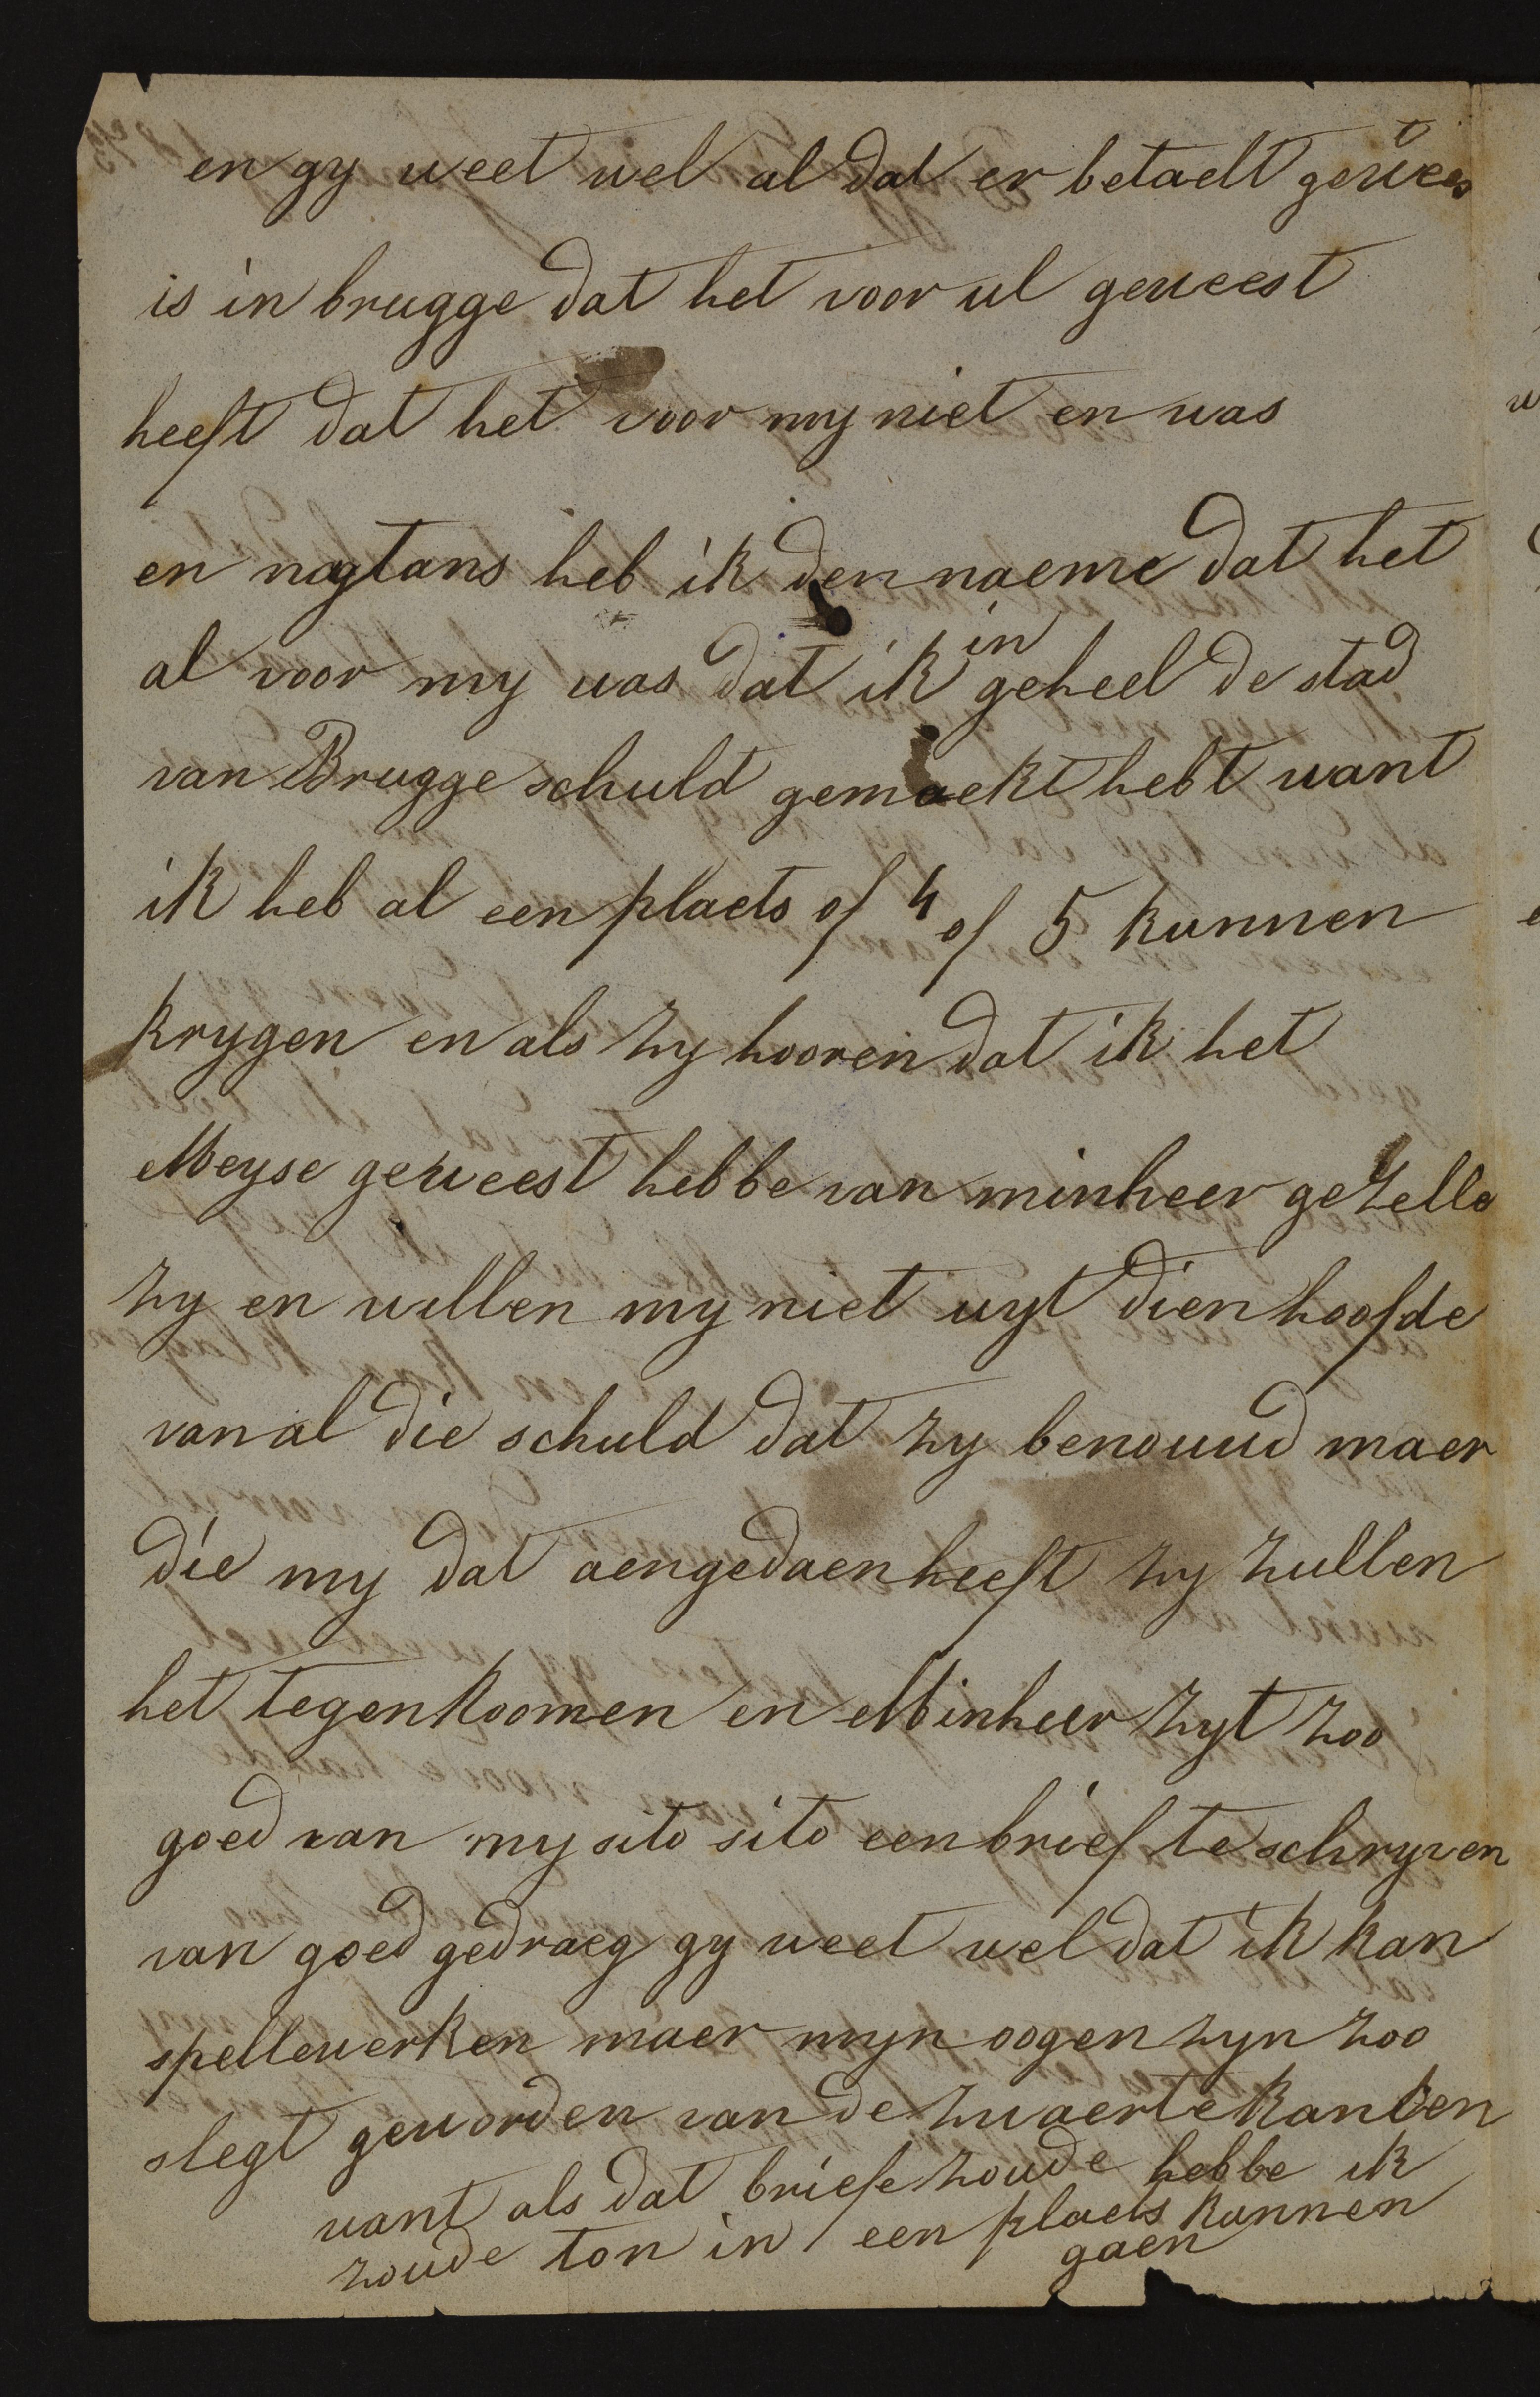 en gy weet wel al dat er betaelt gewees t
is in brugge dat het voor ul geweest
heeft dat het voor my niet en was
en nogtans heb ik den naeme dat het
al voor my was dat ik in geheel de stad
van Brugge schuld gemaekt hebt want
ik heb al een plaets of 4 of 5 kunnen
krygen en als zy hooren dat ik het
Meyse geweest hebbe van minheer gezelle
zy en willen my niet uyt dien hoofde
van al die schuld dat zy benouwd maer
die my dat aengedaen heeft zy zullen
het tegenkoomen en Minheer zyt zoo
goed van my sito sito een brief te schryven
van goed gedraeg gy weet wel dat ik kan
spellewerken maer myn oogen zyn zoo
slegt geworden van de zwaerte kanten
want als dat briefe zoude hebbe ik
zoude ton in een plaets kunnen
gaen